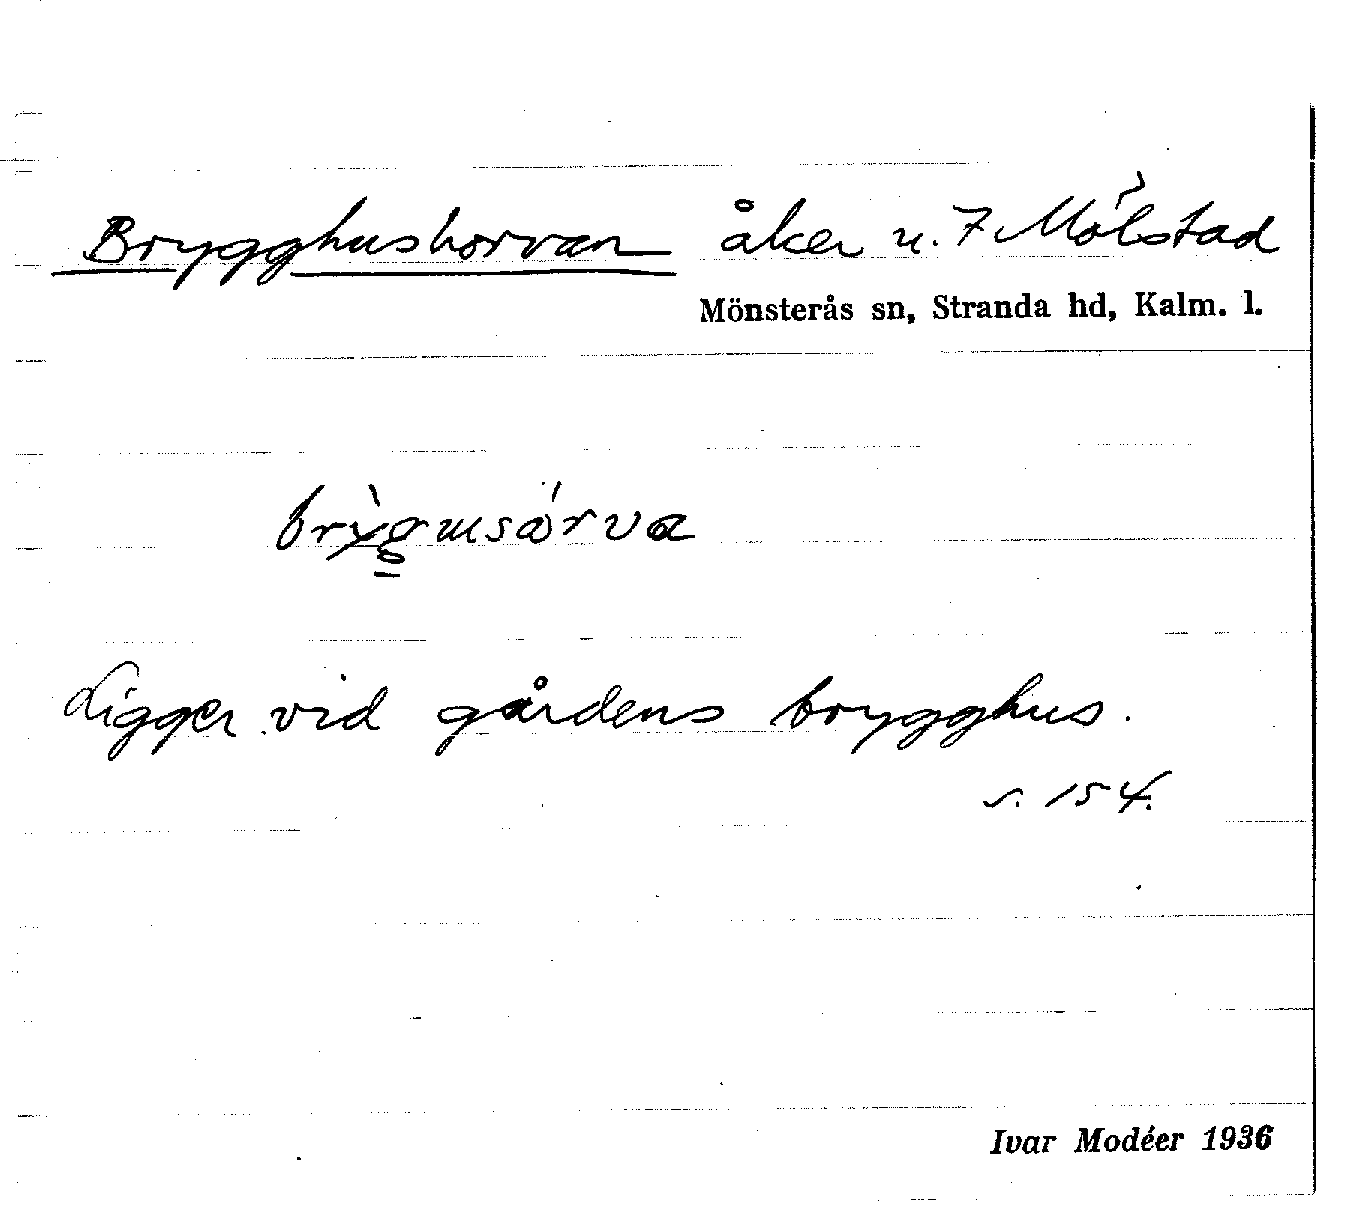 Brygghushorvan åker u. 7 Mölstad
Mönsterås sn, Stranda hd, Kalm. l.
Ligger vid gårdens brygghus.
s. 154.
Ivar Modéer 1936